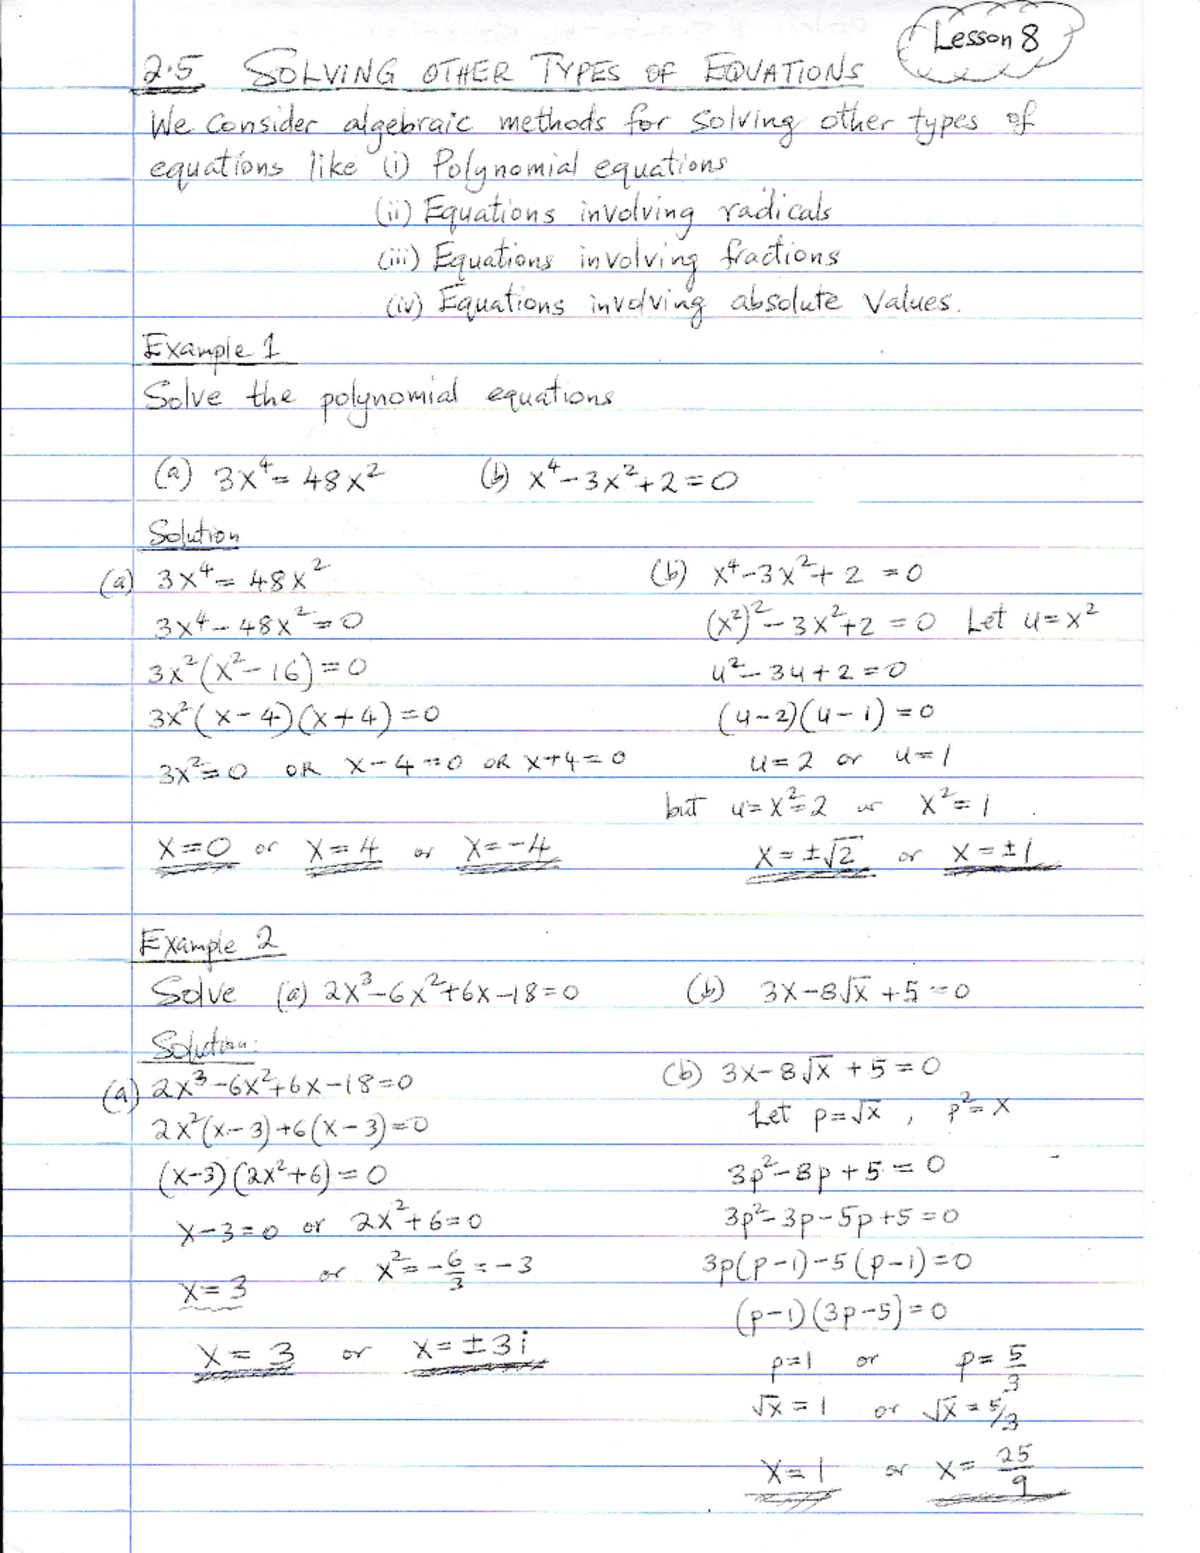 Lesson 8
2.5 SOLVING OTHER TYPES OF EQUATIONS
We Consider algebraic methods for solving other types of
equations like (i) Polynomial equations
(ii) Equations involving radicals
(iii) Equations involving fractions
(iv) Equations involving absolute values.
Example 1
Solve the polynomial equations
(a) 3x⁴ = 48x² (b) x⁴ - 3x² + 2 = 0
Solution
(a) 3x⁴ = 48x²
3x⁴ - 48x² = 0
3x²(x² - 16) = 0
3x²(x - 4)(x + 4) = 0
3x² = 0 OR x - 4 = 0 OR x + 4 = 0
x = 0 or x = 4 or x = -4
(b) x⁴ - 3x² + 2 = 0
(x²)² - 3x² + 2 = 0 Let u = x²
u² - 3u + 2 = 0
(u - 2)(u - 1) = 0
u = 2 or u = 1
but u = x² = 2 or x² = 1
x = ±√2 or x = ±1
Example 2
Solve (a) 2x³ - 6x² + 6x - 18 = 0 (b) 3x - 8√x + 5 = 0
Solution:
(a) 2x³ - 6x² + 6x - 18 = 0
2x²(x - 3) + 6(x - 3) = 0
(x - 3)(2x² + 6) = 0
x - 3 = 0 or 2x² + 6 = 0
x = 3 or x² = -6/3 = -3
x = 3 or x = ±3i
(b) 3x - 8√x + 5 = 0
Let p = √x , p² = x
3p² - 8p + 5 = 0
3p² - 3p - 5p + 5 = 0
3p(p - 1) - 5(p - 1) = 0
(p - 1)(3p - 5) = 0
p = 1 or p = 5/3
√x = 1 or √x = 5/3
x = 1 or x = 25/9